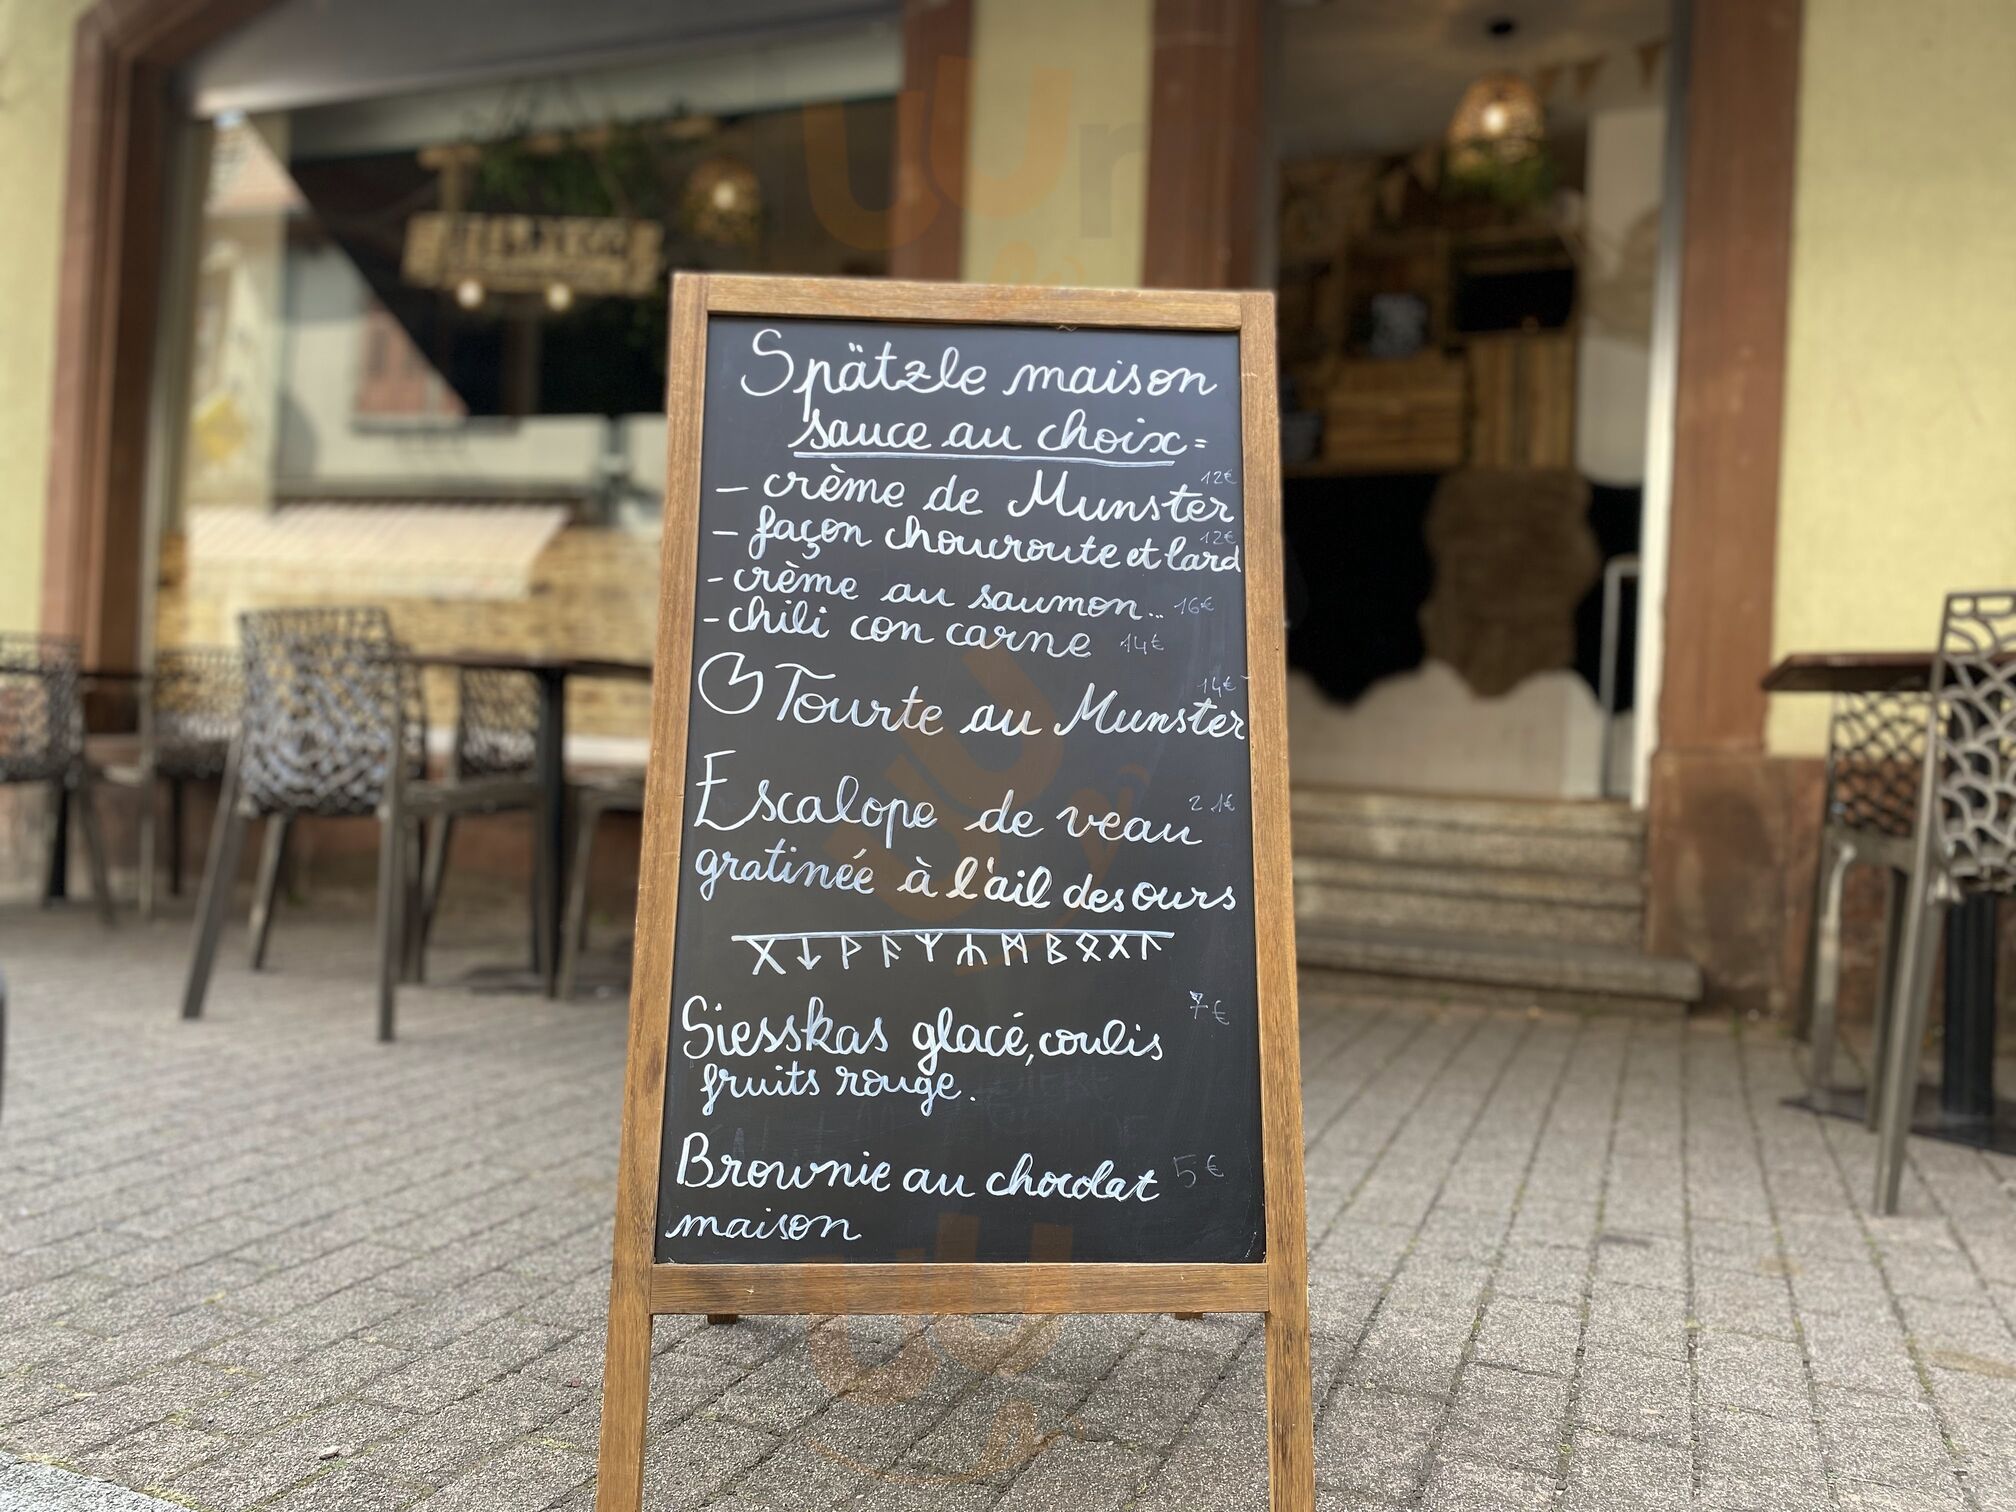 Spätzle maison
sauce au choix =
- crème de Munster 12€
- façon choucroute et lard 12€
- crème au saumon.. 16€
- chili con carne 14€
Tourte au Munster 14€
Escalope de veau 21€
gratinée à l'ail des ours
Siesskas glacé, coulis 7€
fruits rouge.
Brownie au chocolat 5€
maison